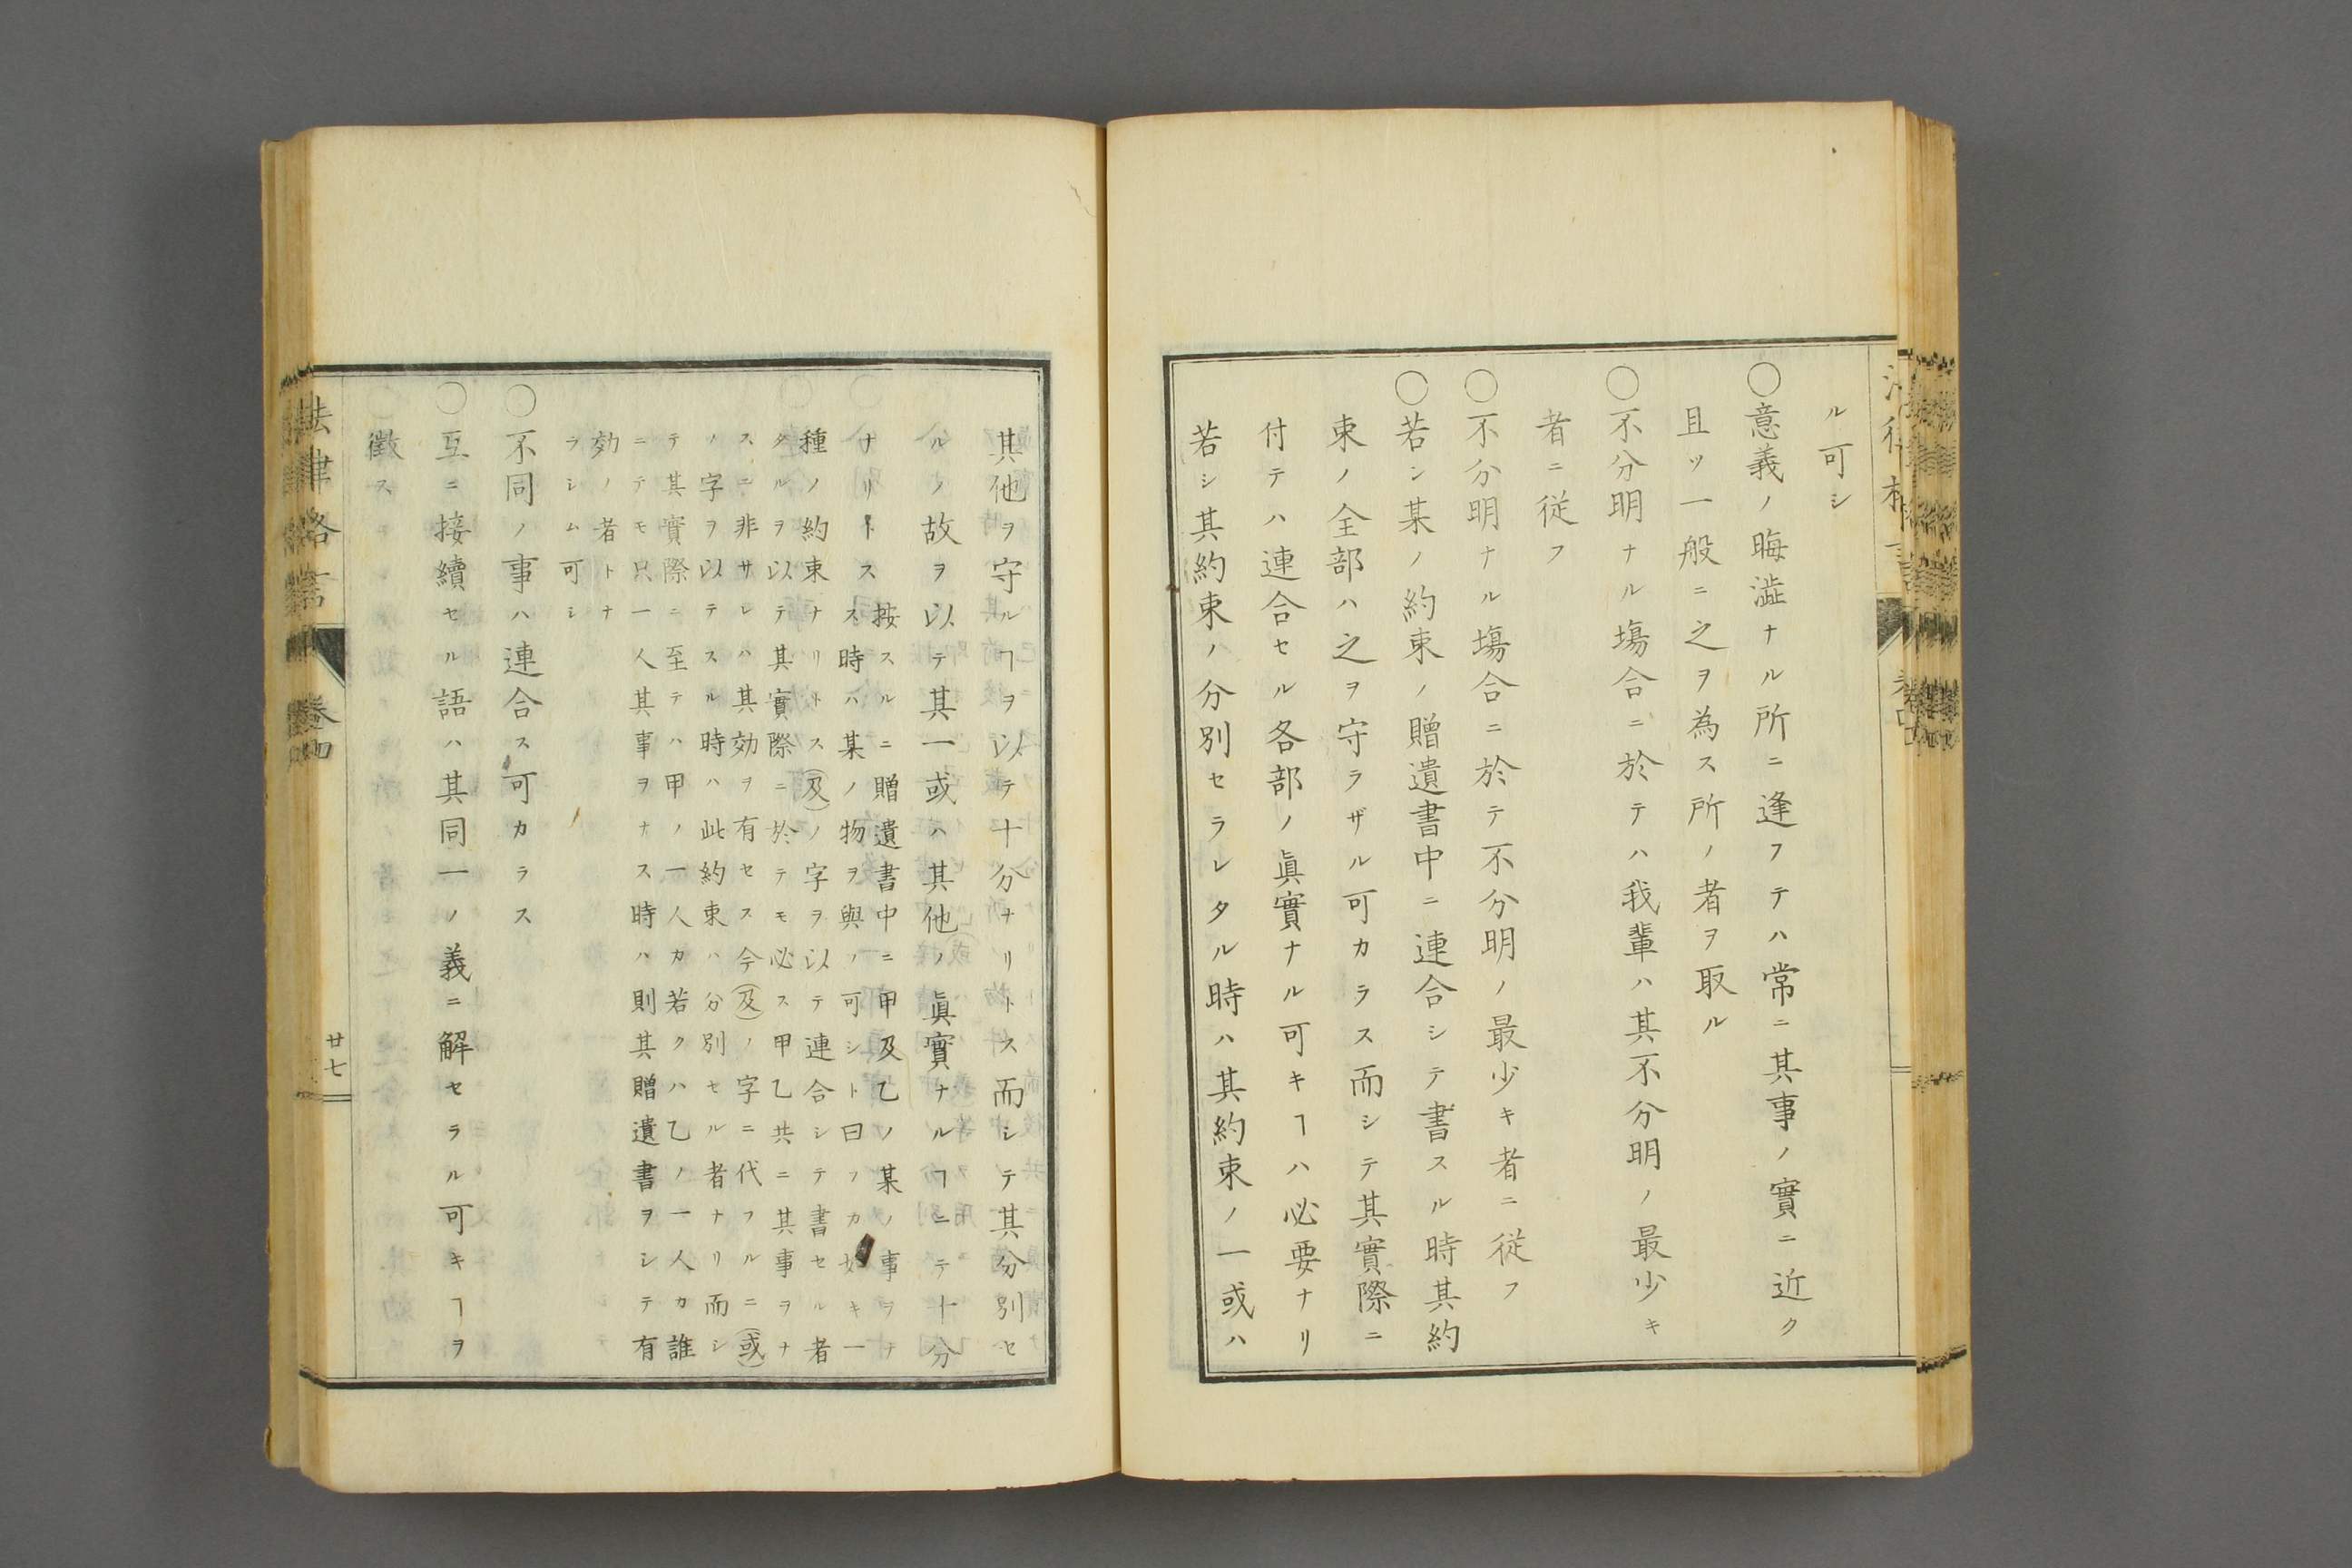 ル可シ
○意義ノ晦澁ナル所ニ逢フテハ常ニ其事ノ實ニ近ク
且ツ一般ニ之ヲ為ス所ノ者ヲ取ル
○不分明ナル塲合ニ於テハ我輩ハ其不分明ノ最少キ
者ニ従フ
○不分明ナル塲合ニ於テ不分明ノ最少キ者ニ従フ
○若シ某ノ約束ノ贈遺書中ニ連合シテ書スル時其約
束ノ全部ハ之ヲ守ラザル可カラス而シテ其實際ニ
付テハ連合セル各部ノ眞實ナル可キヿハ必要ナリ
若シ其約束ノ分別セラレタル時ハ其約束ノ一或ハ
其他ヲ守ルヿヲ以テ十分ナリトス而シテ其分別セ
ルノ故ヲ以テ其一或ハ其他ノ眞實ナルヿニテ十分
ナリトス
按スルニ贈遺書中ニ甲及乙ノ某ノ事ヲナ
ス時ハ某ノ物ヲ與ノ可シト曰フカ如キ一
種ノ約束ナリトス(及)ノ字ヲ以テ連合シテ書セル者
タルヲ以テ其實際ニ於テモ必ス甲乙共ニ其事ヲナ
スニ非サレハ其効ヲ有セス今(及)ノ字ニ代フルニ(或)
ノ字ヲ以テスル時ハ此約束ハ分別セル者ナリ而シ
テ其實際ニ至テハ甲ノ一人カ若クハ乙ノ一人カ誰
ニテモ只一人其事ヲナス時ハ則其贈遺書ヲシテ有
効ノ者トナ
ラシム可シ
○不同ノ事ハ連合ス可カラス
○互ニ接續セル語ハ其同一ノ義ニ解セラル可キヿヲ
徴ス
法律格言
卷四
廿七